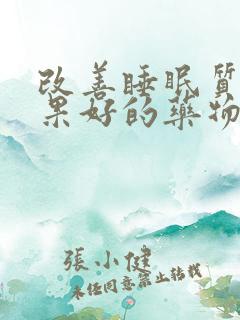 改善睡眠質
果好的藥物
張小健
未經同意禁止轉載